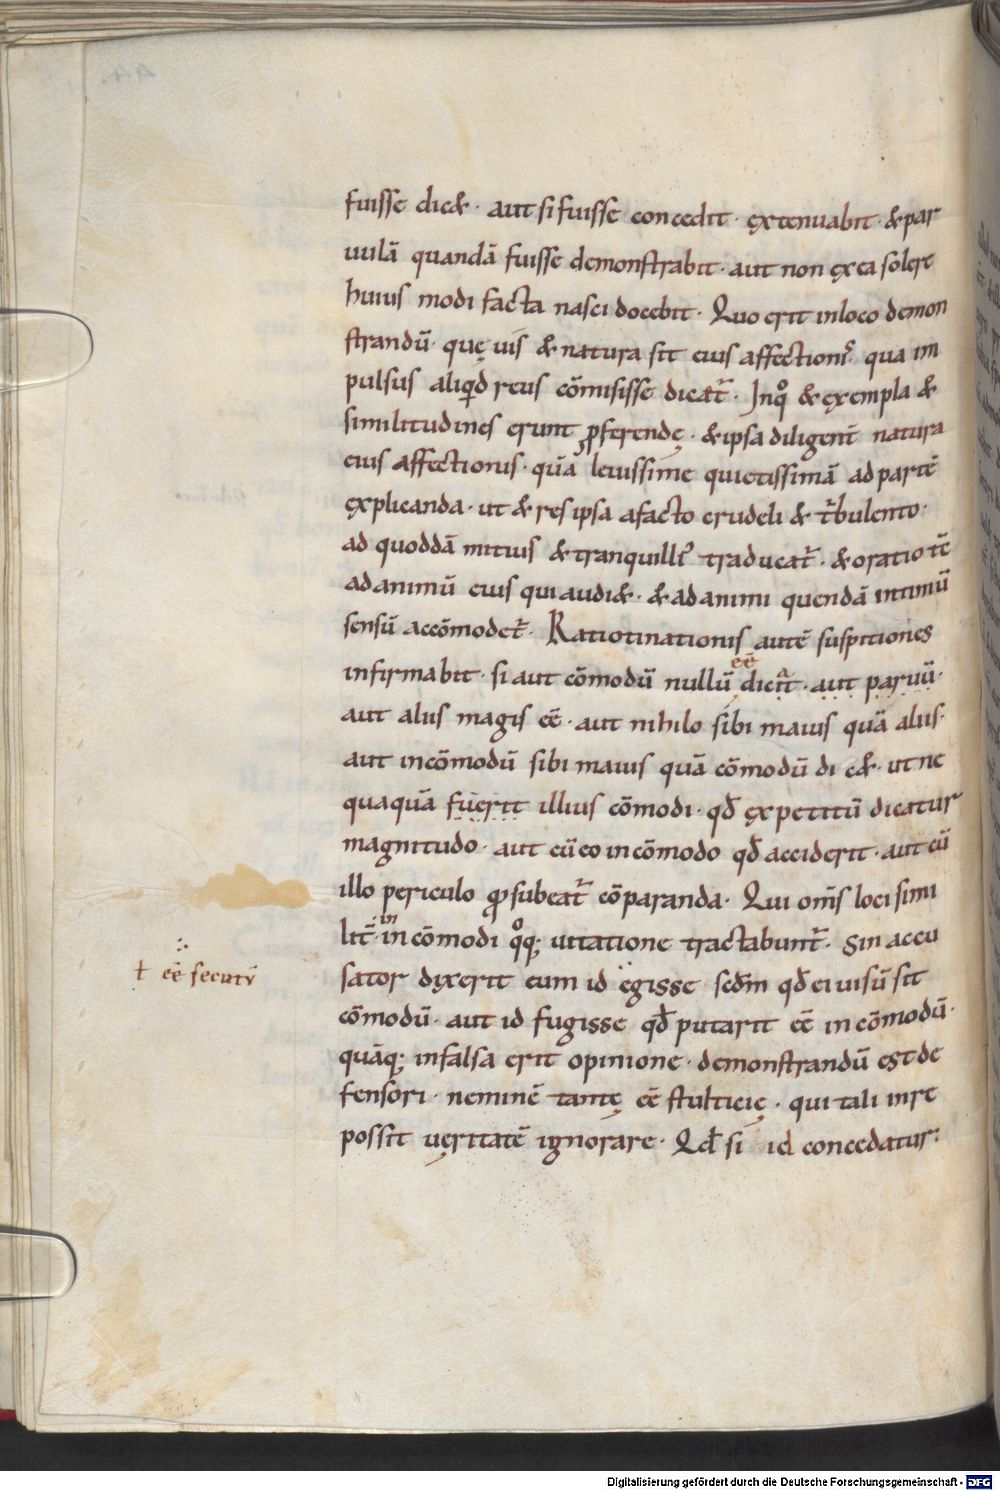 fuisse dic&· aut si fuisse concedit· ęxtenuabit· & par
uulā quandā fuisse demonstrabit· aut non ęx ea solere
huius modi facta nasci docebit· Quo erit in loco demon
strandū· quę uis & natura sit eius affectionis qua im
pulsus aliqd reus cōmisisse dicat̄· Inqͦ & ęxempla &
similitudines erunt ꝓferendę· & ipsa diligent̄ natura
eius affectionis· quā leuissime quietissimā ad partē
ęxplicanda· ut & res ipsa a facto crudeli & t̄bulento·
ad quoddā mitius & tranquilliꝰ traducat̄· & oratio tā
ad animū eius qui audi&· & ad animi quendā intimū
sensū accōmodet̄· Ratiotinationis autē suspitiones
eē
infirmabit· si aut cōmodū nullū dicit· aut paruū·
aut aliis magis eē· aut nihilo sibi maius quā aliis·
aut incōmodū sibi maius quā cōmodū dic&· ut ne
quaquā fuerit illius cōmodi· qđ ęxpetitū dicatur
magnitudo· aut cū eo incōmodo qđ acciderit· aut cū
illo periculo qđ subeat̄ cōparanda· Qui om̄s loci simi
lit̄ in incōmodi qͦq; uitatione tractabunt̄· Sin accu
ł eē secutū
sator dixerit eum id egisse secdm qđ ei uisū sit
cōmodū· aut id fugisse qđ putarit eē incōmodū·
quāq; in falsa erit opinione· demonstrandū est de
fensori· neminē tantę eē stulticię· qui tali in re
possit ueritatē ignorare· Qđ si id concedatur:
Digitalisierung gefördert durch die Deutsche Forschungsgemeinschaft - DFG